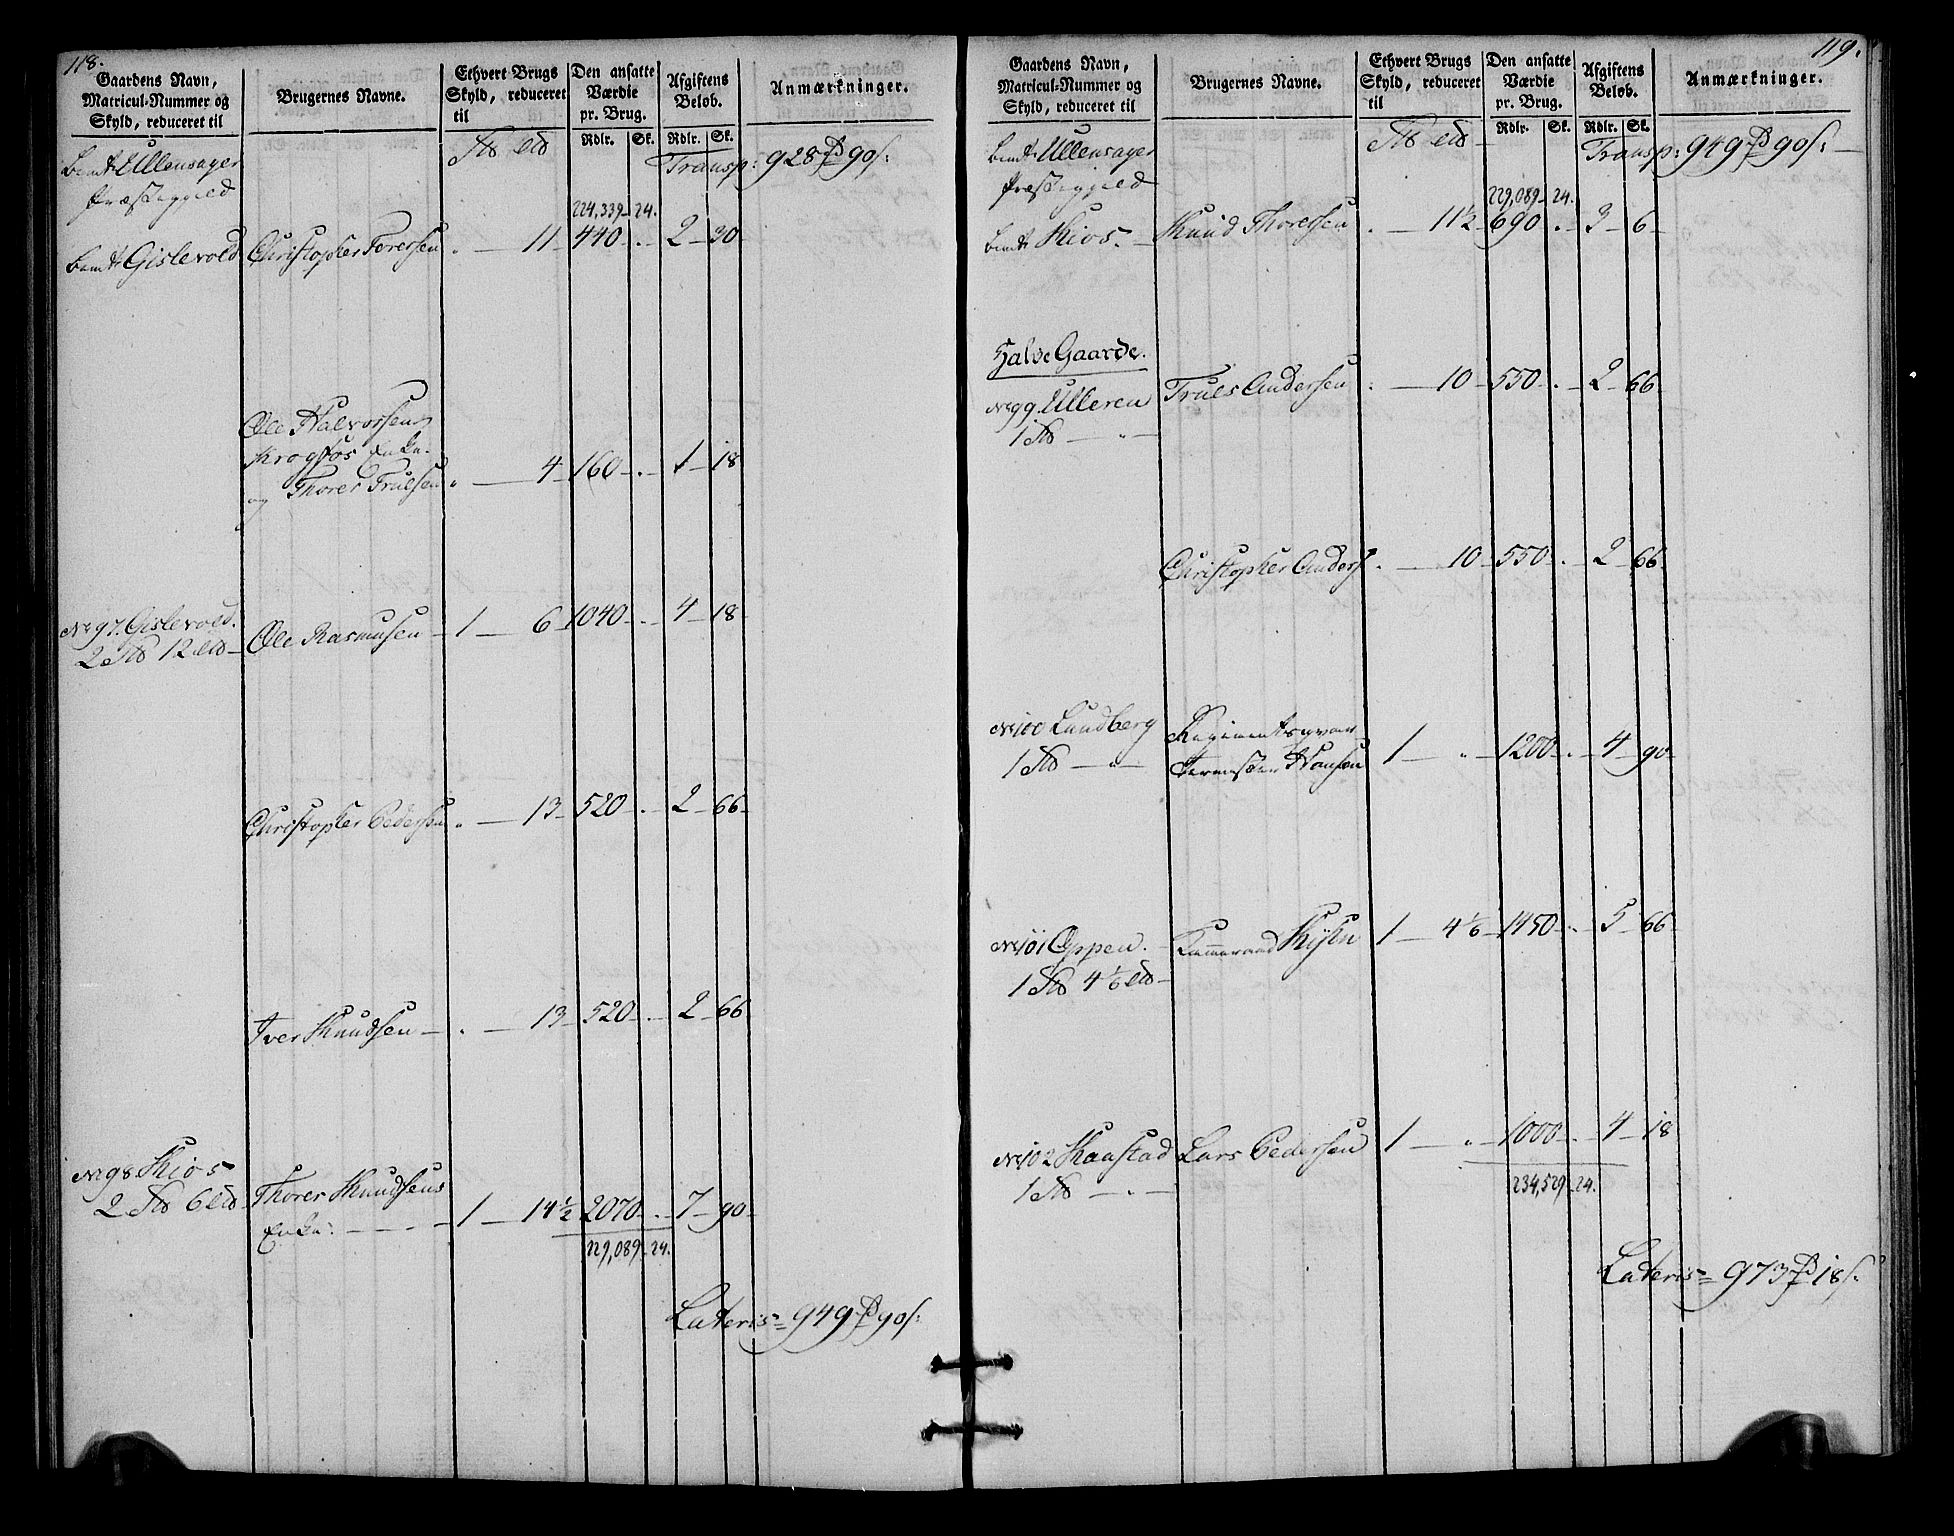 118.
Gaardens Navn,
Matricul-Nummer og
Skyld, reduceret til
Brugernes Navne.
Ethvert Brugs
Skyld, reduceret
til
Den ansatte
Værdie
pr. Brug.
Rdlr. Sk.
Afgiftens
Beløb.
Rdlr. Sk.
Anmærkninger.
Ullensager
Præstegjeld
Transp: 928 90
224,339 24.
Gislevold Christopher Torersen 11 440 2 30
Ole Halvorsen
Krogfos Enke
og Thorer Truelsen 4 160 1 18
No 97. Gislevold. Ole Rasmusen 1 6 1040 4 18
2 12
Christopher Pedersen 13 520 2 66
Iver Knudsen 13 520 2 66
No 98 Kios
2 6
Thorer Knudsens
Enke 1 14½ 2070 7 90
229,089 24.
Lateris 949 90
119.
Gaardens Navn,
Matricul-Nummer og
Skyld, reduceret til
Brugernes Navne.
Ethvert Brugs
Skyld, reduceret
til
Den ansatte
Værdie
pr. Brug.
Rdlr. Sk.
Afgiftens
Beløb.
Rdlr. Sk.
Anmærkninger.
Ullensager
Præstegjeld
Transp: 949 90
229,089 24.
Kios Knud Thoresen 11½ 690 3 6
Halve Gaarde.
No 99. Ulleren Truls Andersen 10 550 2 66
1
Christopher Anders 10 550 2 66
No 100 Lundberg Regimentsqvar
1 termester Hansen 1 1200 4 90
No 101 Oppen. Kammerraad 1 4⅙ 1450 5 66
1 4⅙
No 102 Kanstad Lars Pedersen 1 1000 4 18
1
234,529 24.
Lateris 973 18